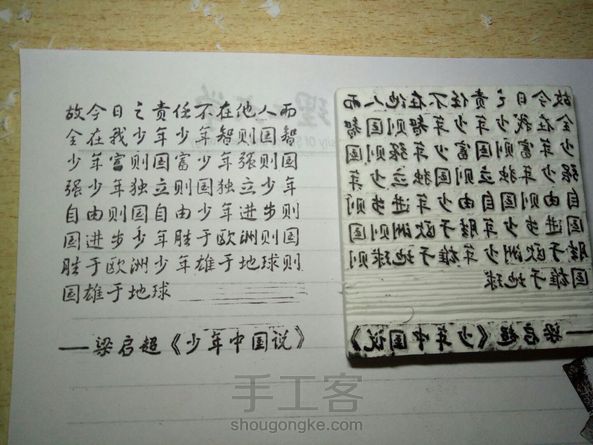 故今日之责任不在他人而
全在我少年少年智则国智
少年富则国富少年强则国
强少年独立则国独立少年
自由则国自由少年进步则
国进步少年胜于欧洲则国
胜于欧洲少年雄于地球则
国雄于地球
——梁启超《少年中国说》
故今日之责任不在他人而
全在我少年少年智则国智
少年富则国富少年强则国
强少年独立则国独立少年
自由则国自由少年进步则
国进步少年胜于欧洲则国
胜于欧洲少年雄于地球则
国雄于地球
——梁启超《少年中国说》
手工客
shougongke.com